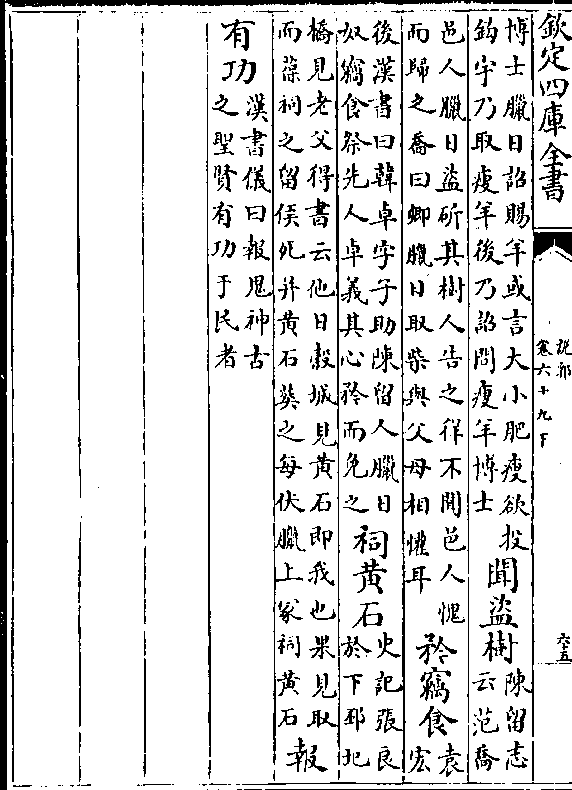 欽定四庫全書
説郛
卷六十九下
六十五
博士臘日詔賜羊或言大小肥瘦欲投
鈎宇乃取瘦羊後乃詔問瘦羊博士
聞盜樹
陳留志
云范喬
邑人臘日盜斫其樹人告之徉不聞邑人愧
而歸之喬曰卿臘日取柴與父母相懽耳
矜竊食
袁
宏
後漢書曰韓卓字子助陳留人臘日
奴竊食祭先人卓義其心矜而免之
祠黃石
史記張良
於下邳圯
橋見老父得書云他日穀城見黃石即我也果見取
而葆祠之留侯死并黃石葬之每伏臘上冢祠黃石
報
有功
漢書儀曰報鬼神古
之聖賢有功于民者